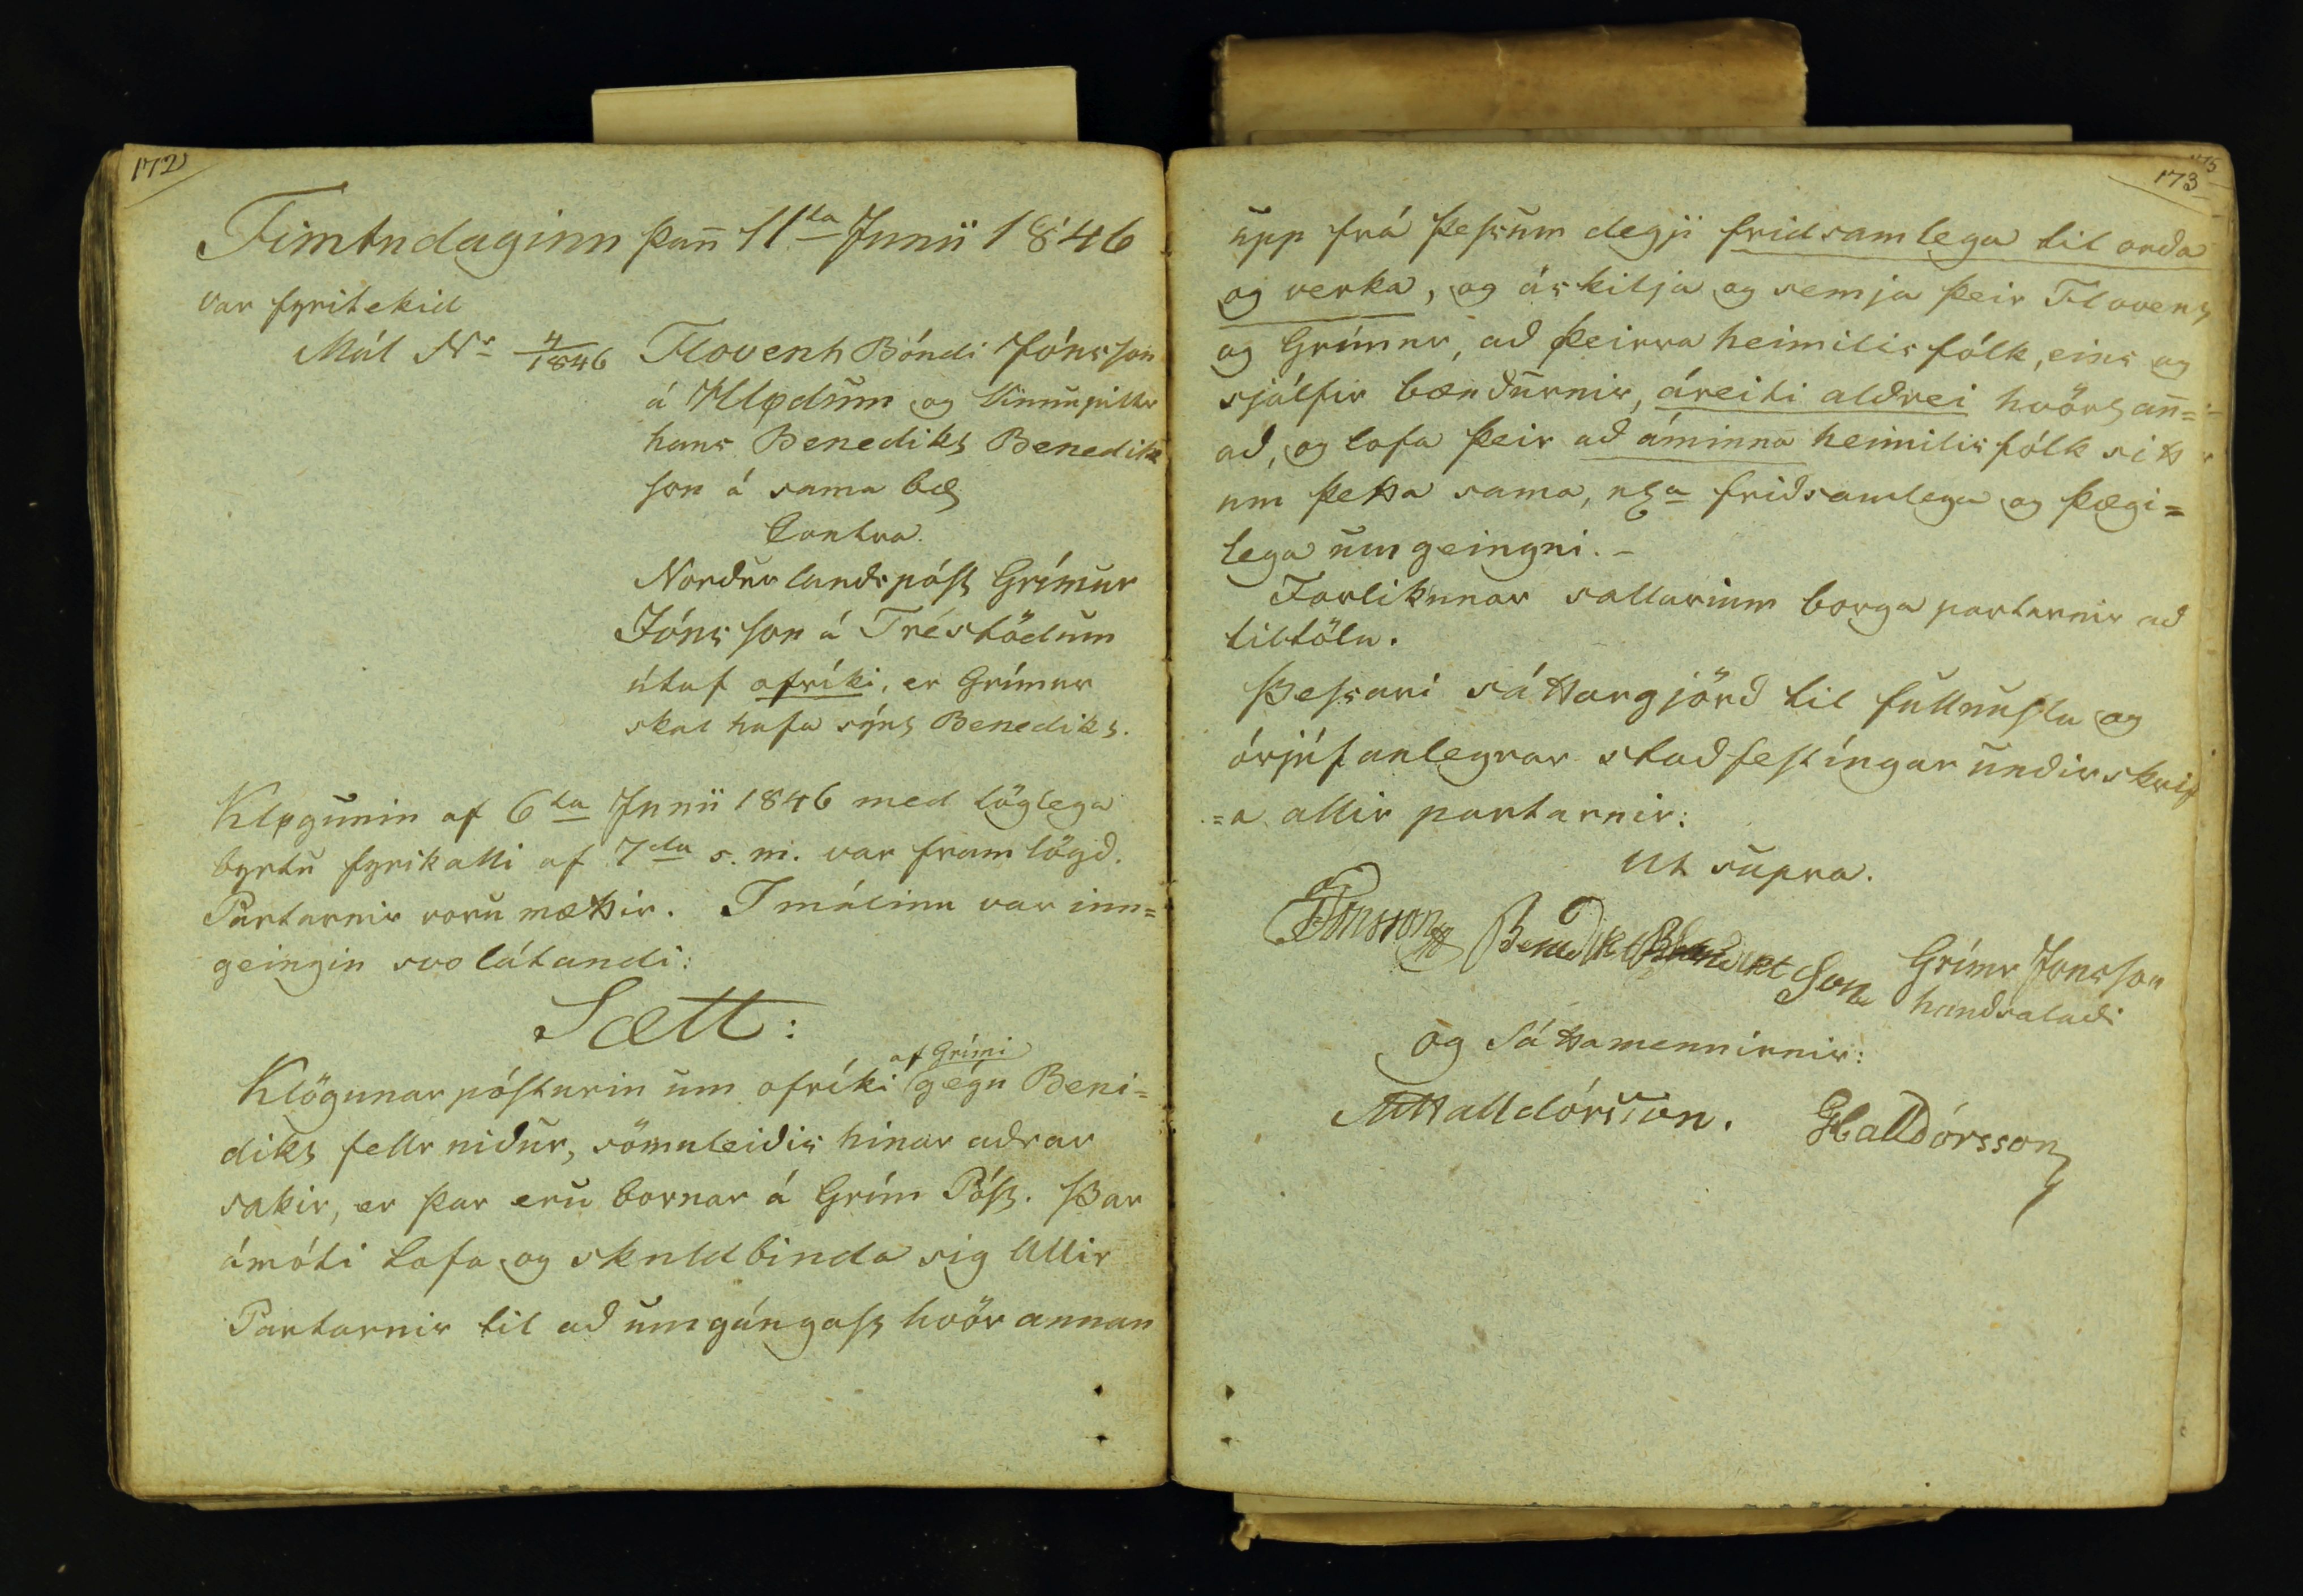 172
Fimtudaginn þañ 11ta Junii 1846
var fyritekid
Mál Nr 4/1846 Flovent Bóndi Jónsson
á Hlødum og Vinnupiltr
hans Benedikt Benedikt
son á sama bæ
Contra.
Nordurlandspóst Grímur
Jónsson á Tréstödum
útaf ofríki, er Grímur
skal hafa sýnt Benedikt.
Kløgunin af 6ta Junii 1846 med löglega
byrtu fyrikalli af 7da s. m. var framlögð.
Partarnir voru mættir. I málinu var inn=
geingin svolátandi:
Sætt:
Klögunar pósturin um ofríki af Grími gégn Beni=
dikt fellr niður, sömuleiðis hinar aðrar
sakir, er þar eru bornar á Grím Póst. Þar
ámóti lofa og skuldbinda sig Allir
Partarnir til að umgángast hvör annan
173
upp frá þessum degji fridsamlega til orða
og verka, og áskilja og semja þeir Flovent
og Grímur, að þeirra heimilisfólk, eins og
sjálfir bændurnir, áreiti aldrei hvört añ=
að, og lofa þeir að áminna heimilisfólk sitt
um þetta sama, friðsamlega og þægi=
lega umgeingni. –
Forlikunar sallarium borga partarnir að
tiltölu.
Þessari sáttargjörð til fullnustu og
órjúfanlegrar staðfestíngar undirskrif
=a allir partarnir:
Ut supra.
FJónsson Benedikt Benedikt Son Grímr Jonsson
handsalaði
og Sáttamennirnir:
Halldórsson. Halldórsson